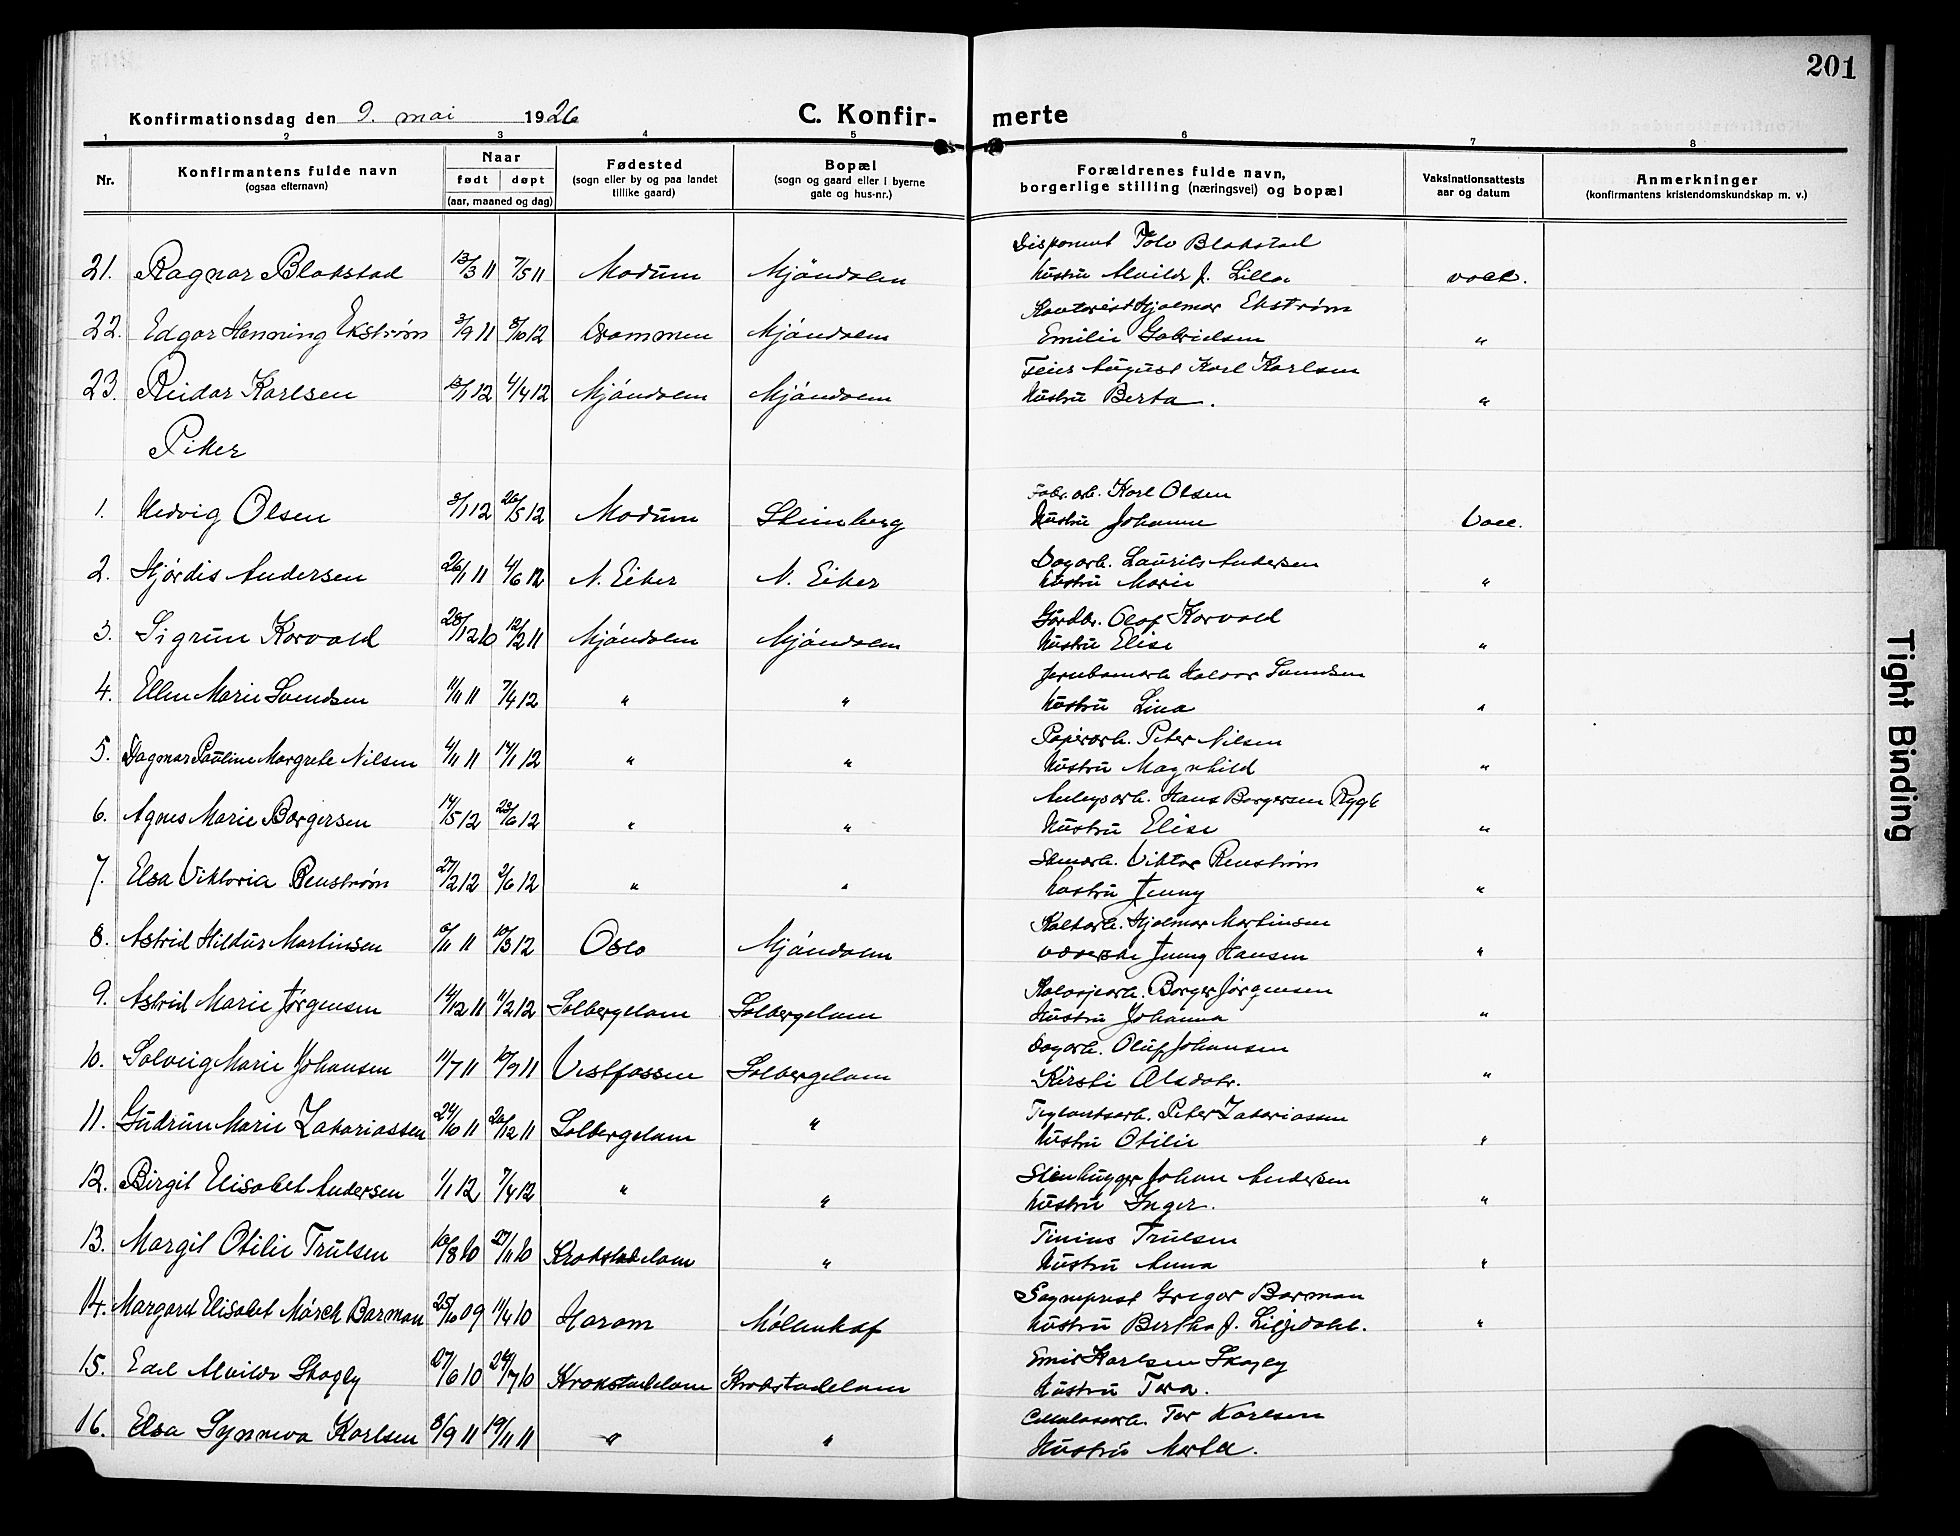 201
Konfirmationsdag den 9. mai 1926
C. Konfir-merte
1 2 3 4 5 6 7 8
Nr.
Konfirmantens fulde navn
(ogsaa efternavn)
Naar
født døpt
(aar, maaned og dag)
Fødested
(sogn eller by og paa landet
tillike gaard)
Bopæl
(sogn og gaard eller i byerne
gate og hus-nr.)
Forældrenes fulde navn,
borgerlige stilling (næringsvei) og bopæl
Vaksinationsattests
aar og datum
Anmerkninger
(konfirmantens kristendomskundskap m. v.)
Disponent Tolv Blakstad
21. Ragnar Blakstad 13/3 11 7/5 11 Modum Mjøndalen Hustru Alvilde J. Lilla vacc.
Kontorist Hjalmar Ekstrøm
22. Edgar Henning Ekstrøm 3/9 11 8/10 12 Drammen Mjøndalen Emilie Gabrielsen "
Feier August Karl Karlsen
23. Reidar Karlsen 13/1 12 4/4 12 Mjøndalen Mjøndalen Hustru Berta. "
Piker
Fabr. arb. Karl Olsen
1. Hedvig Olsen 3/1 12 26/5 12 Modum Stenberg Hustru Johanne Vacc.
Dagarb. Laurits Andersen
2. Hjørdis Andersen 26/11 11 4/6 12 N. Eiker N. Eiker Hustru Marie "
Gårdbr. Olaf Korvald
3. Sigrun Korvald 28/12 10 12/2 11 Mjøndalen Mjøndalen Hustru Elise "
Jernbanearb. Halvor Svendsen
4. Ellen Marie Svendsen 11/11 11 7/4 12 " " Hustru Lina "
Papirarb. Peter Nilsen
5. Dagmar Pauline Margrete Nilsen 4/11 11 14/1 12 " " Hustru Magnhild "
Anlegsarb. Hans Borgersen Rygh
6. Agnes Marie Borgersen 14/5 12 23/6 12 " " Hustru Elise "
Stenarb. Viktor Renstrøm
7. Elsa Viktoria Renstrøm 27/2 12 2/6 12 " " Hustru Jenny "
Hjalmar Martinsen
8. Astrid Hildur Martinsen 6/11 11 10/3 12 Oslo Mjøndalen Jenny Hansen "
Borger Jørgensen
9. Astrid Marie Jørgensen 14/12 11 11/2 12 Solbergelven Solbergelven Hustru Johanna "
Dagarb. Oluf Johansen
10. Solveig Marie Johansen 11/7 11 10/9 11 Vestfossen Solbergelven Kirsti Olsdatr. "
Teglverksarb. Peter Zakariassen
11. Gudrun Marie Zakariassen 24/10 11 26/12 11 Solbergelven " Hustru Otilie "
Stenhugger Johan Andersen
12. Birgit Elisabet Andersen 1/1 12 7/4 12 " " Hustru Inger. "
Tinius Trulsen
13. Margit Otilie Trulsen 16/8 10 27/11 10 Krokstadelven " Hustru Anna "
Sogneprest Gregor Barman
14. Margaret Elisabet Mørch Barman 25/10 09 11/4 10 Haram Møllenhof Hustru Bertha J. Liljedahl. "
Emil Karlsen Skogly
15. Edel Alvilde Skogly 27/6 10 24/7 10 Krokstadelven Krokstadelven Hustru Tora.
Cellulosearb. Tor Karlsen
16. Elsa Synnøva Karlsen 8/9 11 19/11 11 " " Hustru Marta.
Tight Binding